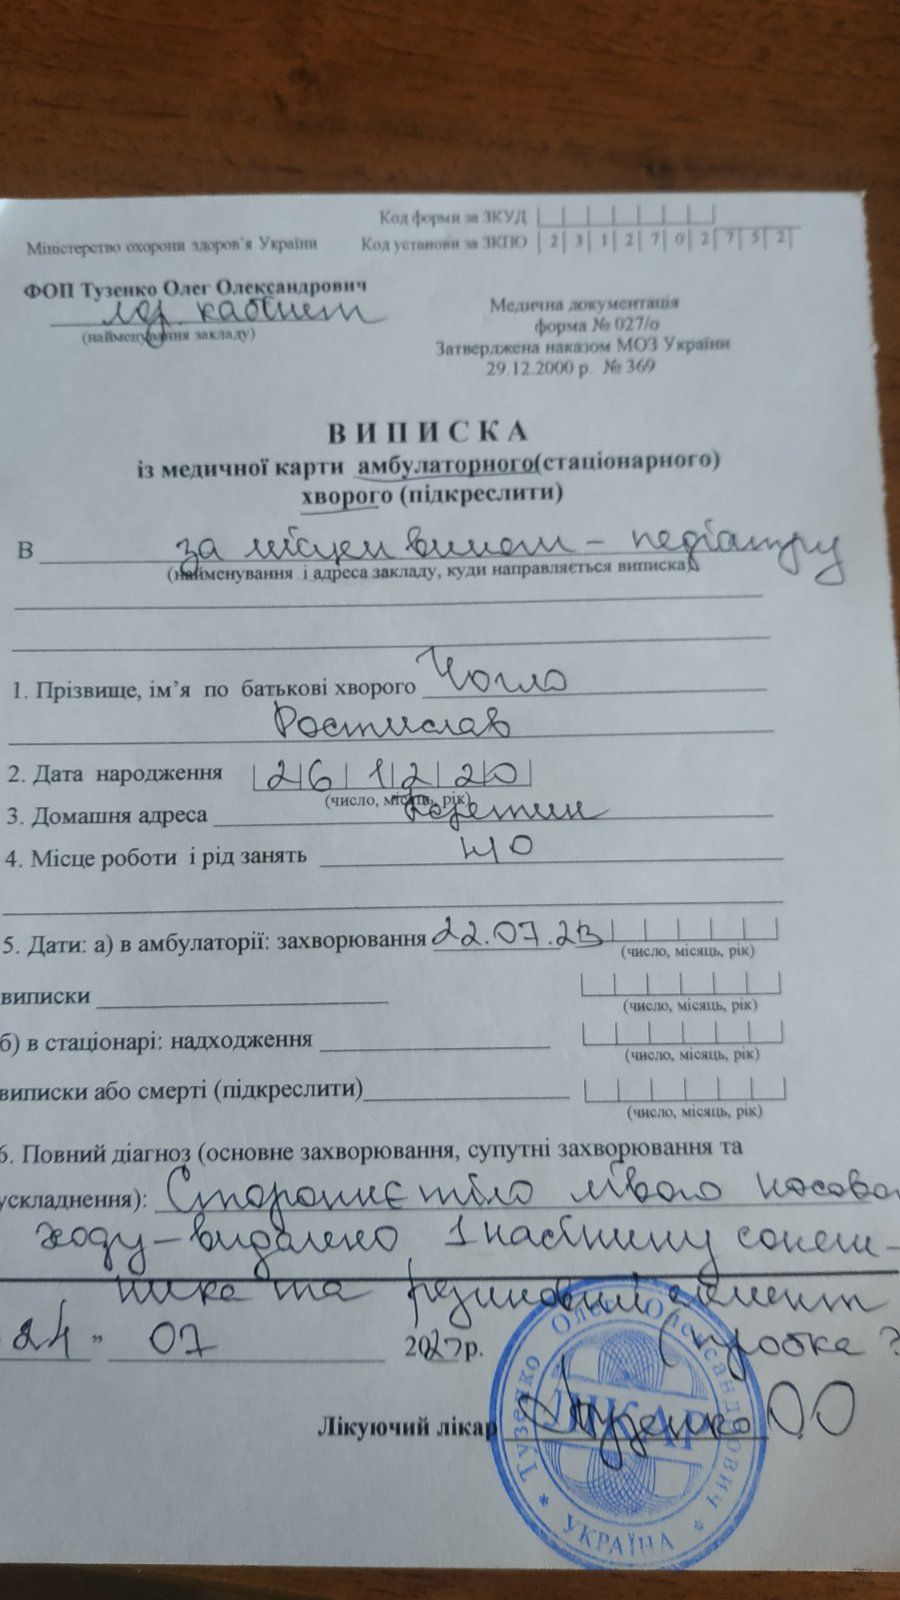 Код форми за ЗКУД
Міністерство охорони здоров'я України Код установи за ЗКПО 2 3 1 2 7 0 2 7 5 2
ФОП Тузенко Олег Олександрович
лор. кабінет
(найменування закладу)
Медична документація
форма № 027/о
Затверджена наказом МОЗ України
29.12.2000 р. № 369
ВИПИСКА
із медичної карти амбулаторного(стаціонарного)
хворого (підкреслити)
В за місцем вимоги – педіатру
(найменування і адреса закладу, куди направляється виписка)
1. Прізвище, ім'я по батькові хворого Чогло
Ростислав
2. Дата народження 26 12 20
(число, місяць, рік)
3. Домашня адреса Козятин
4. Місце роботи і рід занять н/о
5. Дати: а) в амбулаторії: захворювання 22.07.23
(число, місяць, рік)
виписки
(число, місяць, рік)
б) в стаціонарі: надходження
(число, місяць, рік)
виписки або смерті (підкреслити)
(число, місяць, рік)
6. Повний діагноз (основне захворювання, супутні захворювання та
ускладнення): Стороннє тіло лівого носового
ходу – видалено 1 насінину соняш-
ника та резиновий елемент
24 " 07 2023 р. (пробка?
Лікуючий лікар Тузенко О О
Тузенко Олег Олександрович
ЛІКАР
* УКРАЇНА *